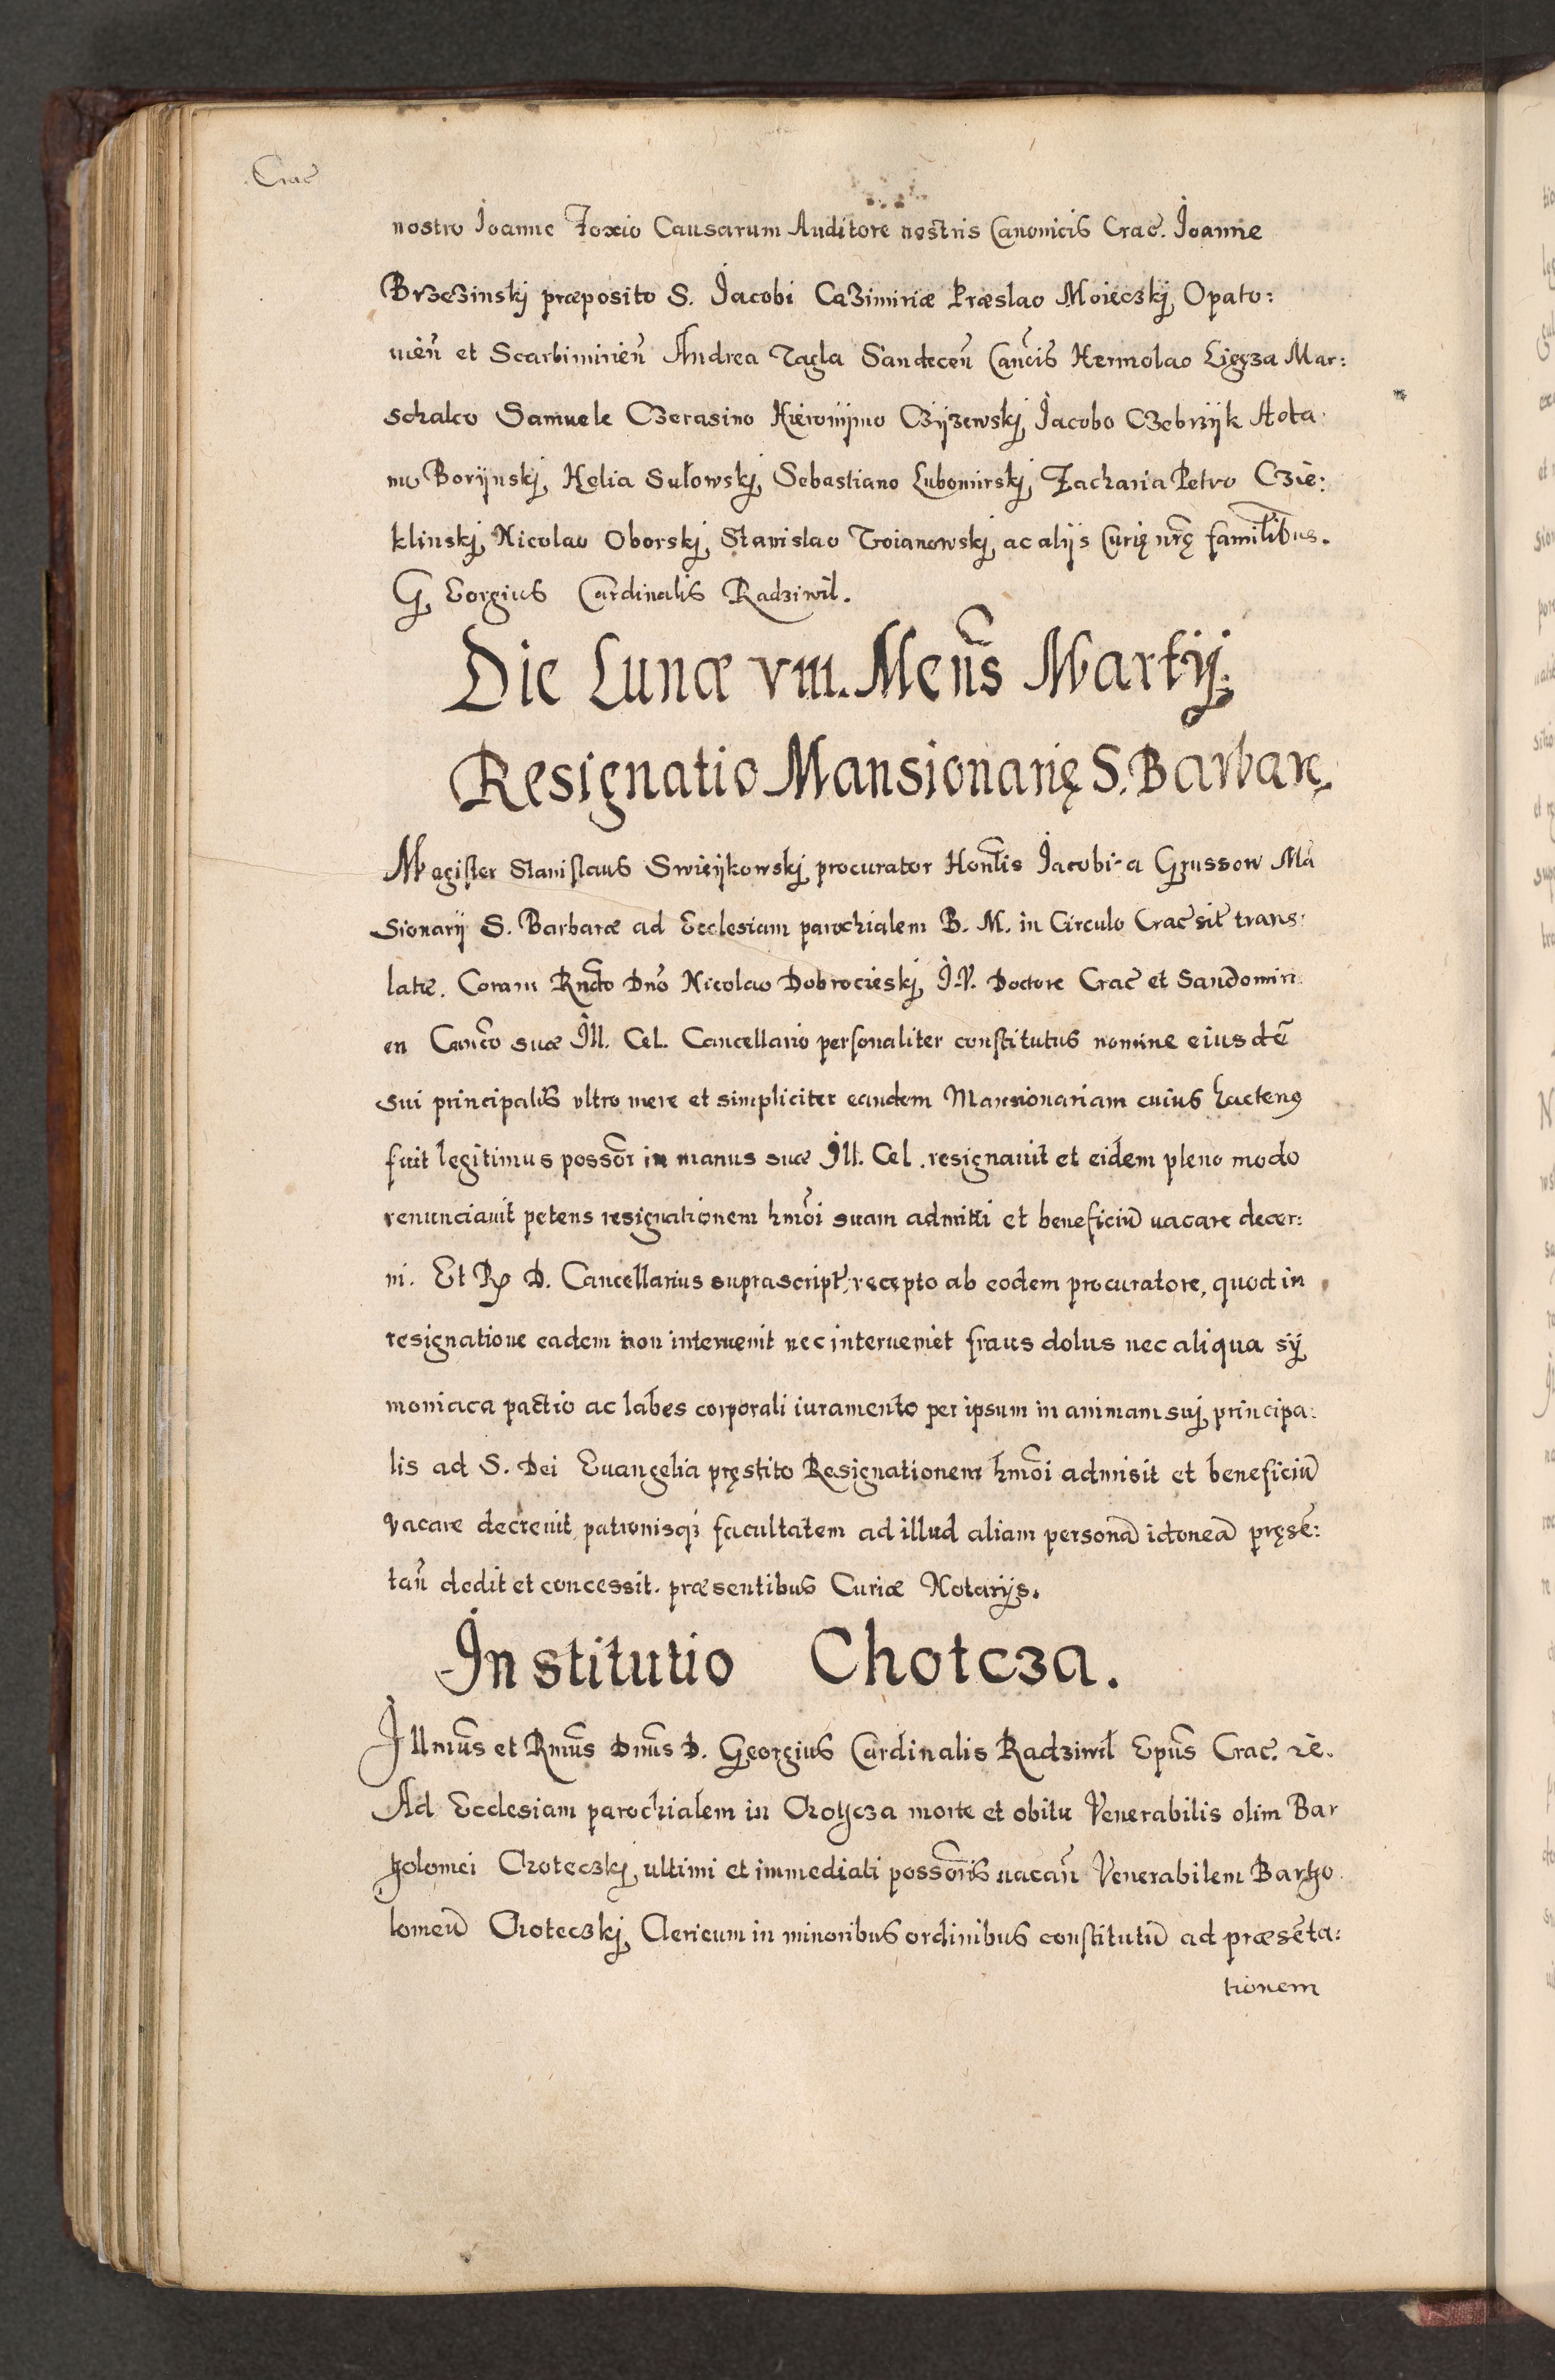 Crac̃
nostro Joanne Foxio Causarum Auditore nostris Canonicis Crac̃. Joanne
Brzezinskj præposito S. Jacobi Cazimiriæ Præslao Moieczkj Opato:
vien̄ et Scarbimirien̄ Andrea Tagla Sandecen̄ Can̄cis Hermolao Ligęza Mar:
schalco Samuele Czerasino Hieronijmo Czijzewskj Jacobo Czebrzijk Aota
mo Borijnskj, Helia Sułowskj, Sebastiano Lubomirskj, Zacharia Petro Czie:
klinskj, Nicolao Oborskj, Stanislao Troianowskj, ac alijs Curię nr̄ę famil̄ibus.
Georgius Cardinalis Radziwil.
Die Lunæ VIII. Men̄s Martij.
Resignatio Mansionarię S. Barbarę.
Magister Stanislaus Swieijkowskj procurator Hon̄lis Jacobi a Grussow Mā
sionarij S. Barbaræ ad Ecclesiam parochialem B. M. in Circulo Crac̃ sit̃ trans:
latæ. Coram Rn̄do Dn̄o Nicolao Dobrocieskj, J.V. Doctore Crac̃ et Sandomiri
en Can̄co suæ Ill. Cel. Cancellario personaliter constitutus nomine eiusdē
sui principalis vltro mere et simpliciter eandem Mansionariam cuius hactenꝰ
fuit legitimus possor̄ in manus suæ Ill. Cel. resignauit et eidem pleno modo
renunciauit petens resignationem hmōi suam admitti et beneficiū uacare decer:
ni. Et Rꝑ D. Cancellarius suprascript̃, recepto ab eodem procuratore, quod in
resignatione eadem non interuenit nec interueniet fraus dolus nec aliqua sij
moniaca pactio ac labes corporali iuramento per ipsum in animam suj principa:
lis ad S. Dei Euangelia pręstito Resignationem hmōi admisit et beneficiū
vacare decreuit patronisqꝫ facultatem ad illud aliam personā idoneā pręsē:
tan̄ dedit et concessit. præsentibus Curiæ Notarijs.
Institutio Chotcza.
Illmūs et Rmūs Dnūs D. Georgius Cardinalis Radziwil Epūs Crac̃. rē.
Ad Ecclesiam parochialem in Chothcza morte et obitu Venerabilis olim Bar
tholomei Choteczkj, ultimi et immediati possōris uacan̄ Venerabilem Bartho
lomeū Choteczkj, Clericum in minoribus ordinibus constitutū ad præsēta:
tionem